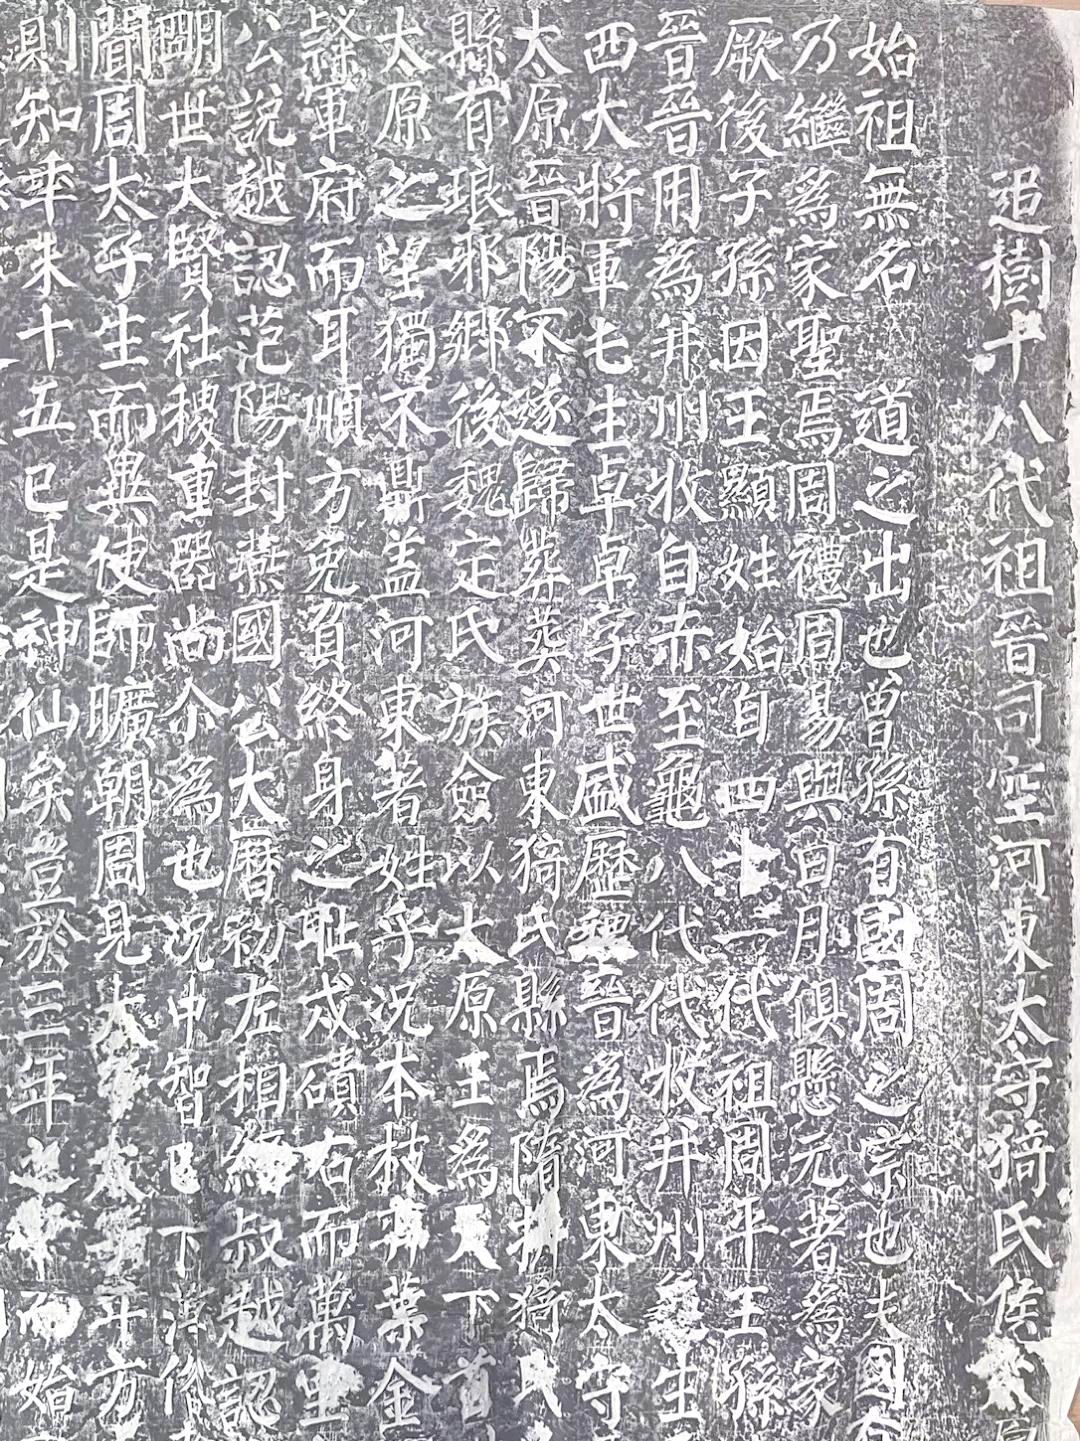 追樹十八代祖晉司空河東太守猗氏侯太原
始祖無名道之出也曾孫有國周之宗也夫國有
乃繼為家聖焉周禮周易與日月俱懸元著為家
厥後子孫因王顯姓始自四十二代祖周平王孫
晉晉用為并州牧自赤至龜八代代牧并州龜生
西大將軍乇生卓卓字世盛歷魏晉為河東太守
太原晉陽不遂歸葬葬河東猗氏縣焉隋於猗氏
縣有琅耶鄉後魏定氏族僉以太原王為天下首
太原之望獨不鼎盖河東著姓乎況本枝弈葉金
隸軍府而耳順方免負終身之耻戍磧右而萬里
公說越認范陽封燕國公大曆初左相縉叔越認
明世大賢社稷重器尚尒為也況中智已下薄俗
聞周太子生而異使師曠朝周見太子太子方
則知年未十五已是神仙矣豈於三年之而始